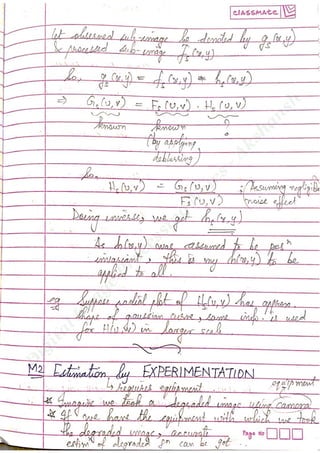 classmate
let observed sub-image be denoted by gs(x,y)
& processed sub-image f̂s(x,y)
So, gs(x,y) = f̂s(x,y) * hs(x,y)
⇒ Gs(u,v) = Fs(u,v) . Hs(u,v)
known known ?
(by applying
deblurring)
So,
Hs(u,v) = Gs(u,v) / F̂s(u,v) ; Assuming negligible
noise effect
Doing inverse, we get hs(x,y)
As h(x,y) was assumed to be posⁿ
invariant, this is my h(x,y) to be
applied to all.
eg Suppose radial plot of Hs(u,v) has approx.
shape of gaussian curve, same info. is used
for H(u,v) in larger scale
M2 Estimation by EXPERIMENTATION
↳ requires equipment
equipment
* Imagine we took a degraded image using camera
* If we have the equipment with which we took
the degraded image, accurate Page no
estimⁿ of degradeⁿ fn can be got